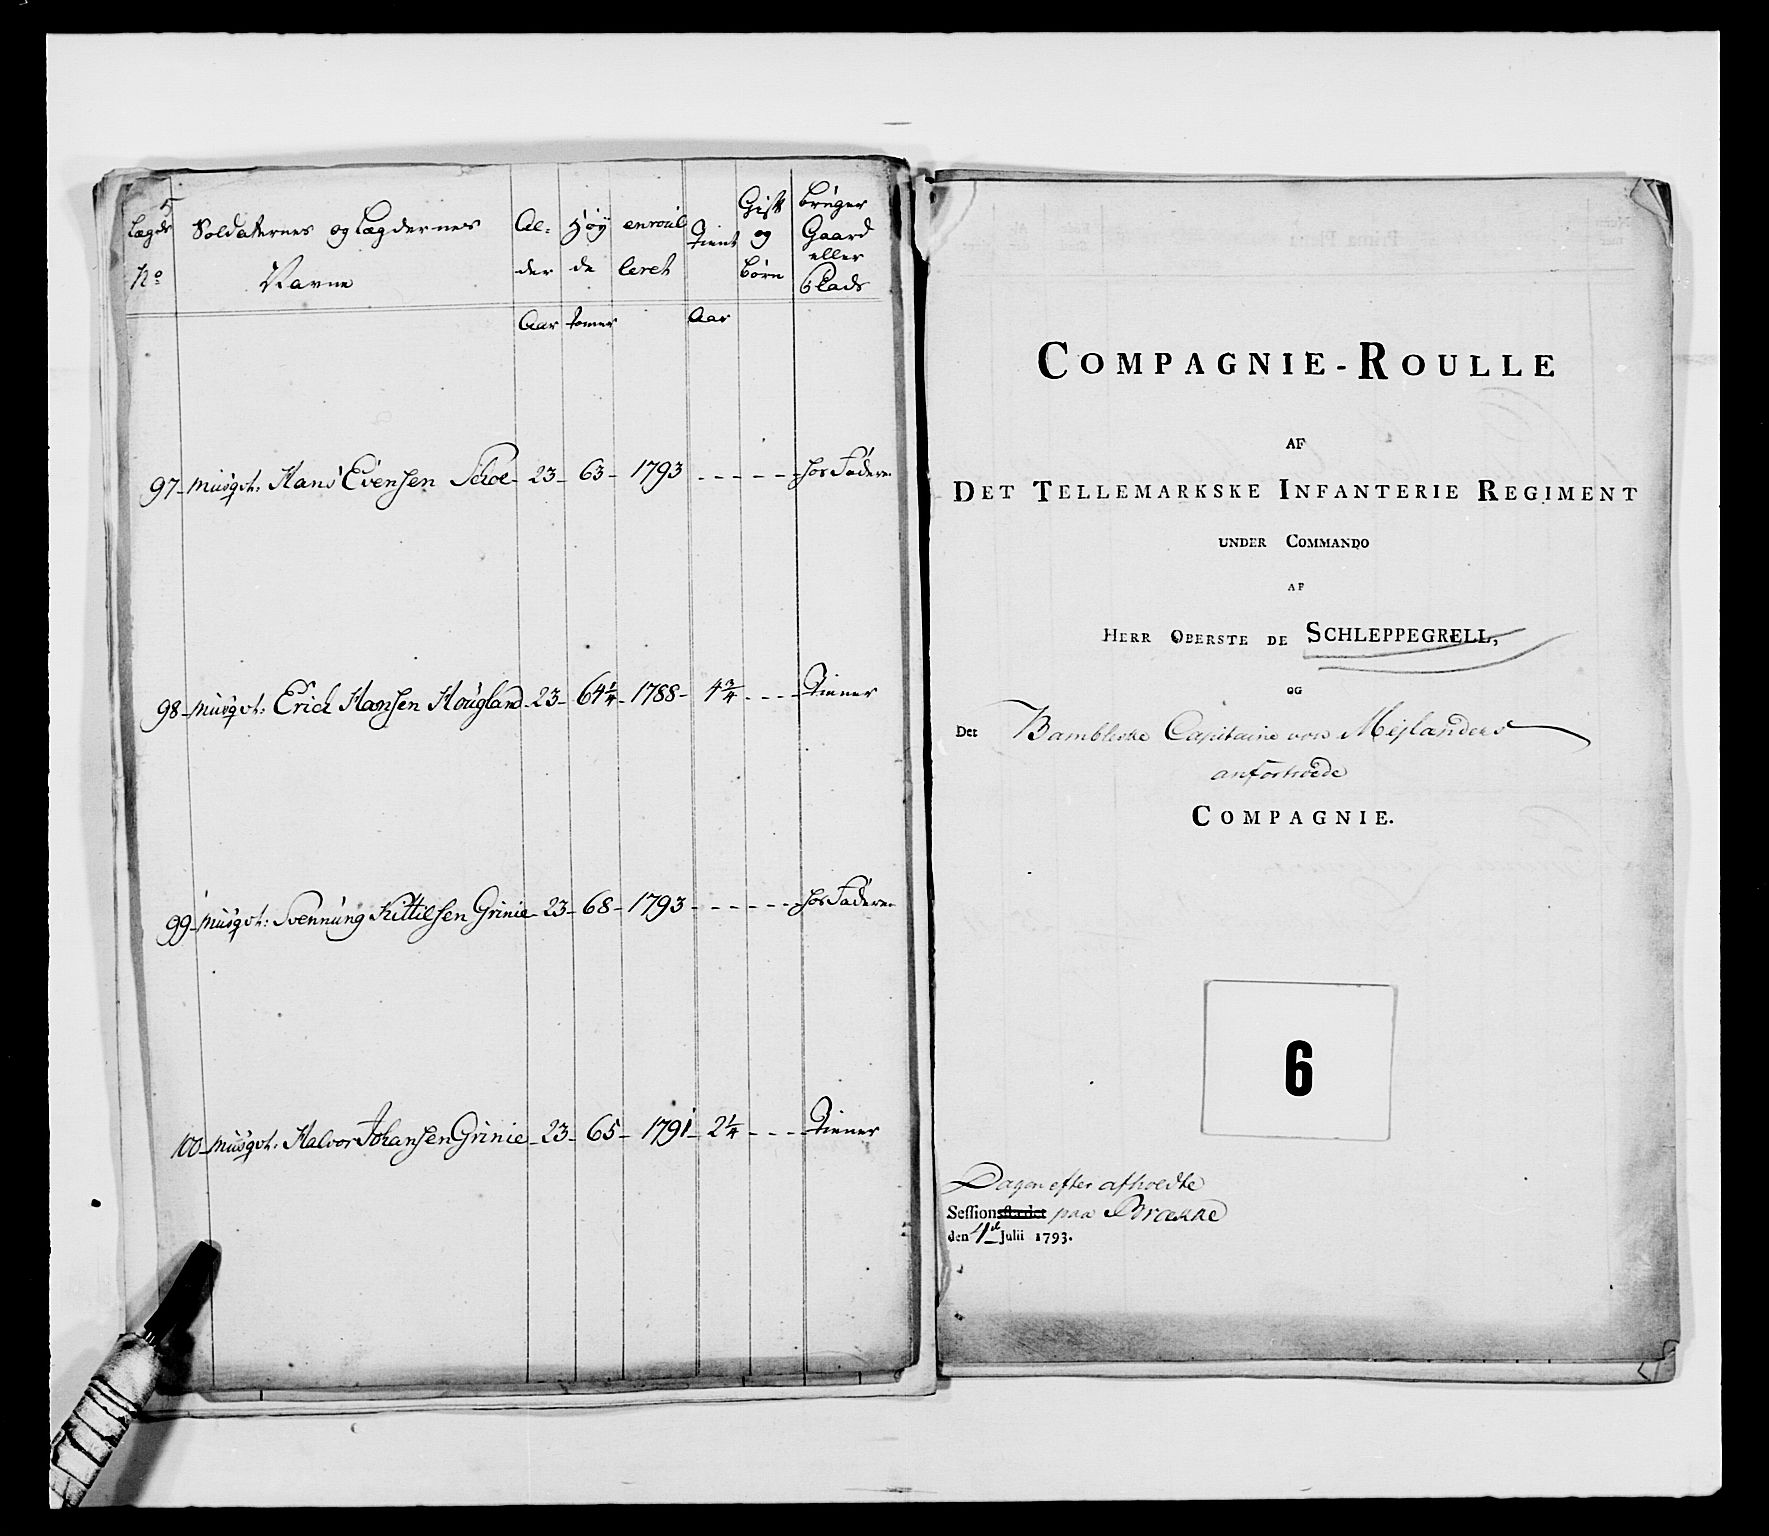 5
Lægds Soldaternes og Lægdernes Al- Høy enroul Tient Gift Brúger
No Navne der de leret og Gaard
Børn eller
Plads
Aar tomer Aar
97 - Musqvt: Hans Evensen - 23 - 63 - 1793 - - - - - hos Faderen
98 - Musqvt: Erich Hansen Hougland - 23 - 64 1/4 - 1788 - 4 3/4 - - - - Tiener
99 - Musqvt: Svennung Kittilsen Grinie - 23 - 68 - 1793 - - - - - - hos Faderen
100 - Musqvt: Halvor Johansen Grinie - 23 - 65 - 1791 - 2 1/4 - - - - Tiener
COMPAGNIE-ROULLE
AF
DET TELLEMARKSKE INFANTERIE REGIMENT
UNDER COMMANDO
AF
HERR OBERSTE DE SCHLEPPEGRELL,
OG
Det Bambleske Capitaine von Mejlænders
anfortroede
COMPAGNIE.
6
Dagen efter afholdte
Sessionsstædet paa Brække
den 4de Julii 1793.